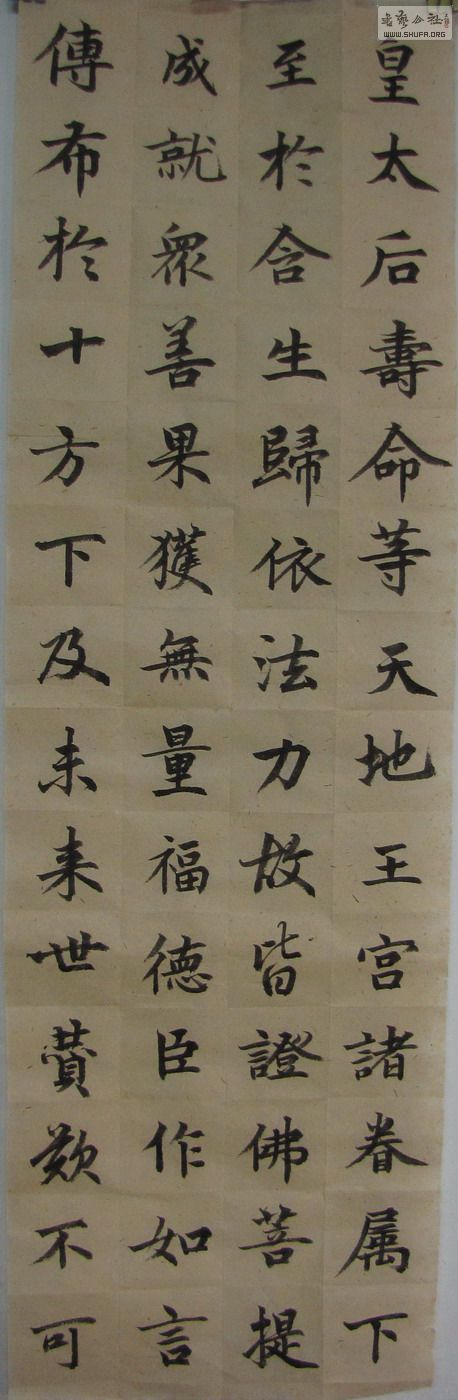 皇太后壽命等天地王宫諸眷属下
至於含生歸依法力故皆證佛菩提
成就眾善果獲無量福德臣作如言
傳布於十方下及未来世賛歎不可
WWW.SHUFA.ORG